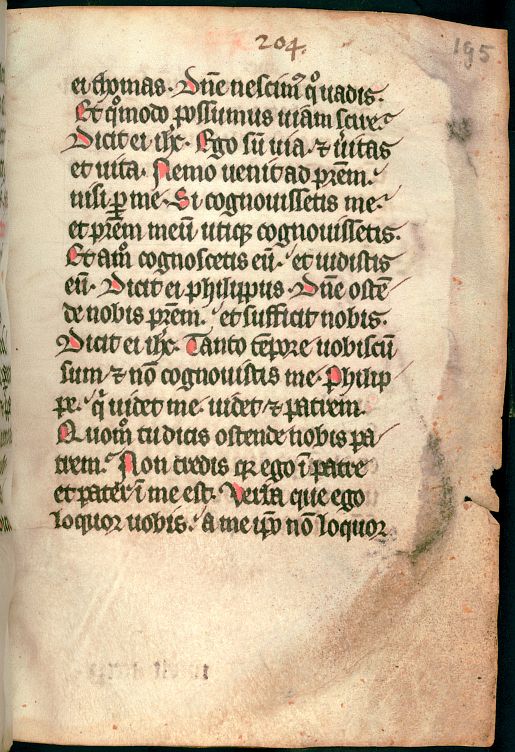 204.
195
ei thomas. Dn̄e nescim⁹ q̊ uadis.
Et q̊modo possumus uiam scire.
Dicit ei ih̄c. Ego sū uia ⁊ ūitas
et uita. Nemo uenit ad prēm.
nisi ꝑ me. Si cognouissetis me.
et prēm meū utiqꝫ cognouissetis.
Et am̊ cognoscetis eū. et uidistis
eū. Dicit ei philippus. Dn̄e oste̅
de nobis prēm. et sufficit nobis.
Dicit ei ih̄c. Tanto te̅pore uobiscū
sum ⁊ nō cognouistis me. Philip
pe. q̇ uidet me. uidet ⁊ patrem.
Quom̊ tu dicis ostende nobis pa
trem. Non credis qꝛ ego ī patre
et pater ī me est. Verba que ego
loquor uobis. a me ip̄o nō loquor